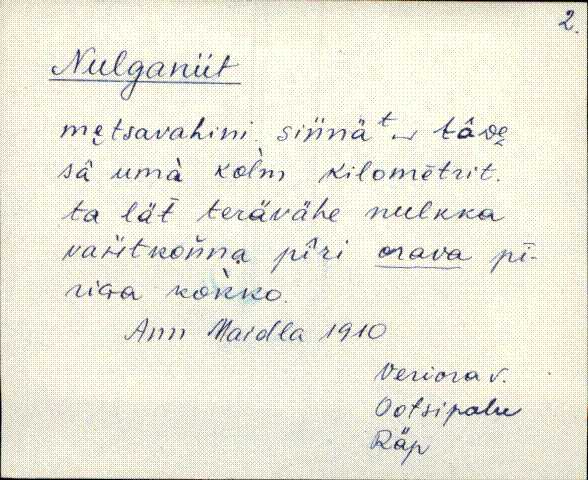 2.
Nulganiit
mę̮tsavahini sińnät ‿ tâᴅę̮
sâ umà kòlm kilomētrit.
ta lät̄ terävähe nulkka
variitkońna pîri orava pī-
riɢa kòkko.
Ann Maidla 1910
Veriora v.
Ootsipalu
Räp